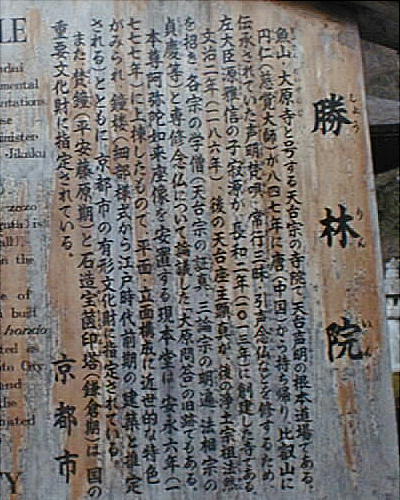 勝林院
しょう りん いん
魚山・大原寺と号する天台宗の寺院で、天台声明の根本道場である。
円仁(慈覚大師)が八四七年に唐(中国)から持ち帰り、比叡山に
伝承されていた声明梵唄、常行三昧・引声念仏などを修するため、
左大臣源雅信の子寂源が、長和二年(一〇一三年)に創建した寺である。
文治二年(一一八六年)、後の天台座主顕真が、後の浄土宗祖法然
を招き、各宗の学僧(天台宗の証真、三論宗の明遍、法相宗の
貞慶等)と専修念仏について論議した「大原問答」の旧跡でもある。
本尊阿弥陀如来座像を安置する現本堂は、安永六年(一
七七七年)に上棟したもので、平面・立面構成に近世的な特色
がみられ、鐘楼(細部様式から江戸時代前期の建築と推定
される)とともに、京都市の有形文化財に指定されている。
また、梵鐘(平安藤原期)と石造宝篋印塔(鎌倉期)は、国の
重要文化財に指定されている。
京都市
LE
ndai
mental
entations
ese
inister-
Jikaku
zozo
ll in
in the
e of
s built
hondo
ted is
to City
and
the
nated
TY